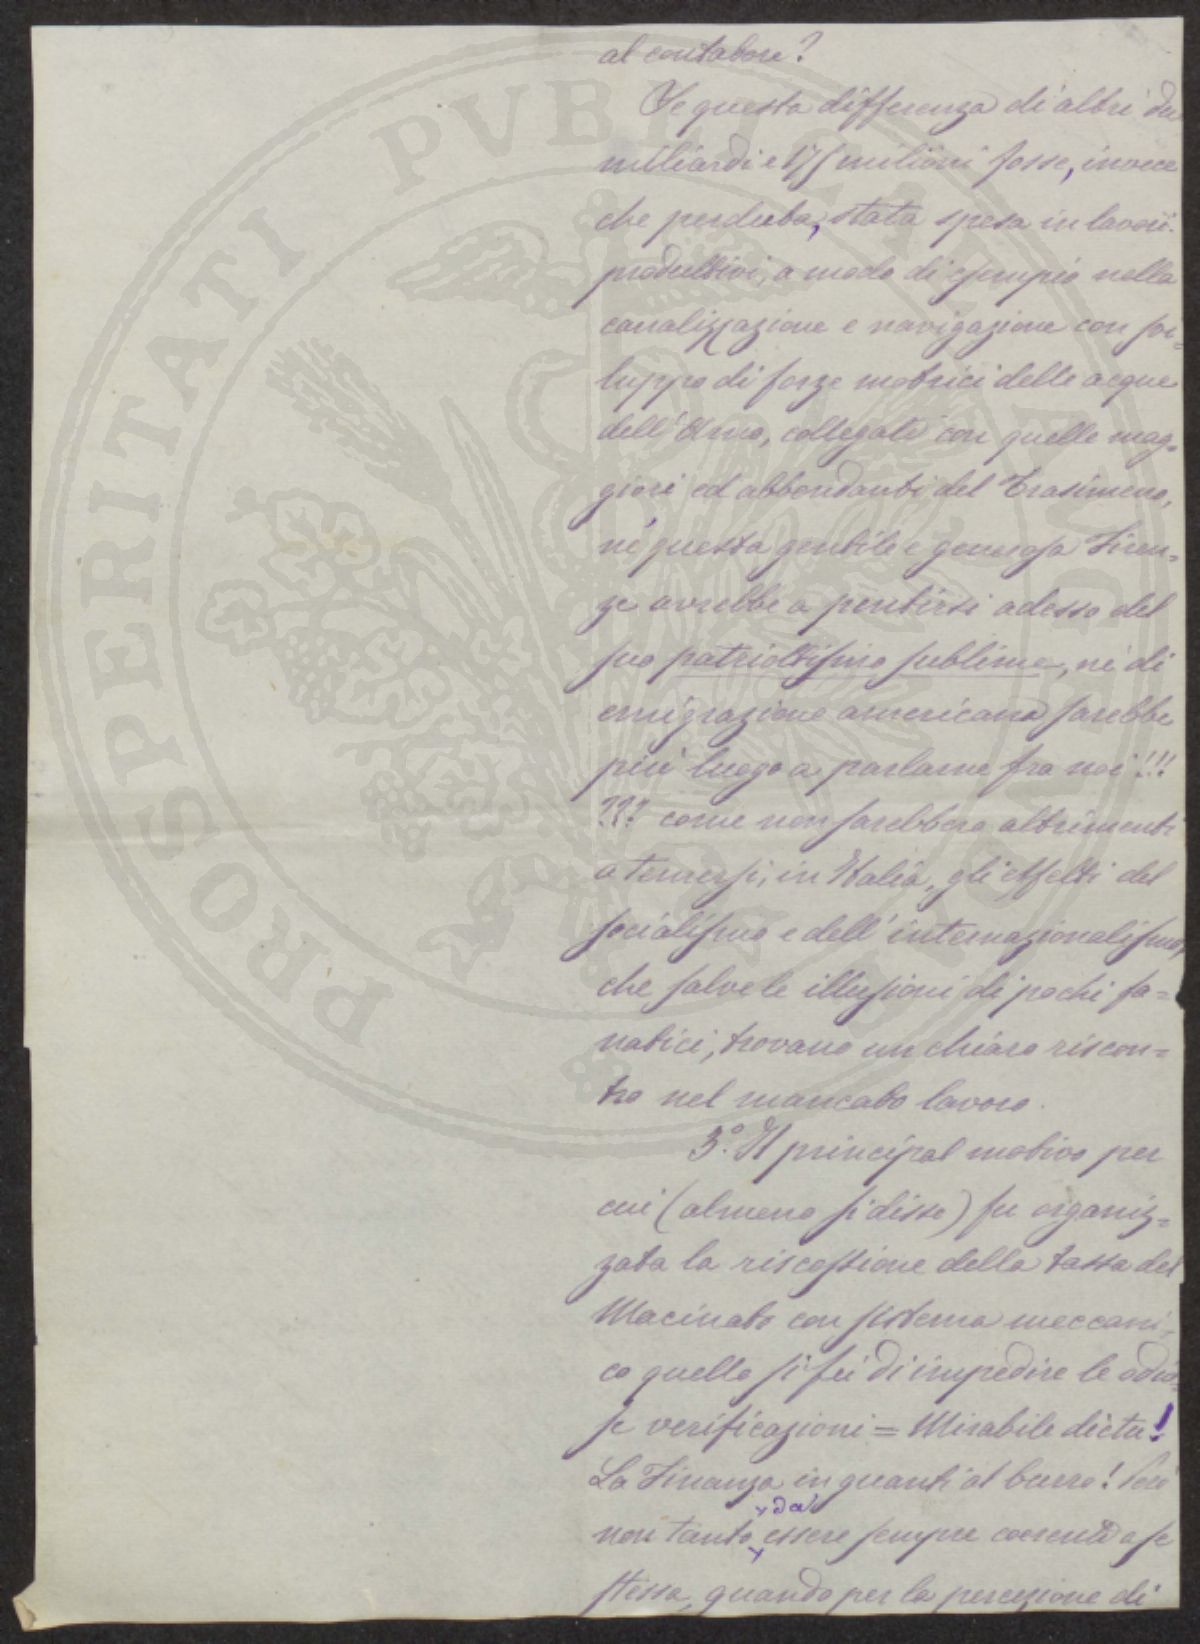 al contatore?
Se questa differenza di altri due
miliardi e 175 milioni fosse, invece
che perduta, stata spesa in lavori
produttivi, a modo di esempio nella
canalizzazione e navigazione con svi=
luppo di forze motrici delle acque
dell'Arno, collegate con quelle mag=
giori ed abbondanti del Trasimeno,
nè questa gentile e generosa Firen=
ze avrebbe a pentirsi adesso del
suo patriottismo sublime, nè di
emigrazione americana sarebbe
più luogo a parlarne fra noi!!!
??? come non sarebbero altrimenti
a temersi, in Italia, gli effetti del
socialismo e dell'internazionalismo,
che salvo le illusioni di pochi fa=
natici, trovano un chiaro riscon=
tro nel mancato lavoro.
3.° Il principal motivo per
cui (almeno si disse) fu organiz=
zata la riscossione della tassa del
Macinato con sistema meccani=
co quello si fu di impedire le odio=
se verificazioni = Mirabile dictu!
La Finanza in guanti al burro! Però
non tanto da essere sempre coerente a se
stessa, quando per la percezione di
PROSPERITATI PVBLICAE